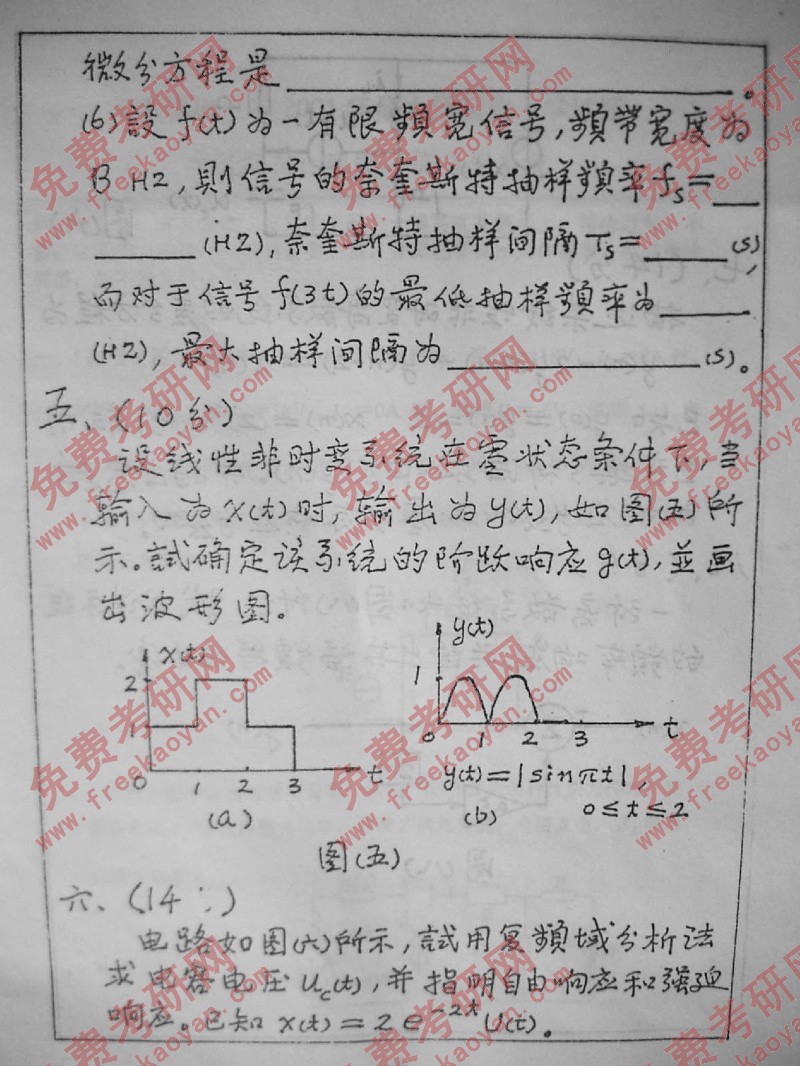 微分方程是__________。
(6)設f(t)为一有限頻宽信号,頻带宽度为
B HZ,則信号的奈奎斯特抽样頻率fs=__
____(HZ),奈奎斯特抽样间隔Ts=____(S),
而对于信号f(3t)的最低抽样頻率为____
(HZ),最大抽样间隔为________(S)。
五、(10分)
设线性非时变系统在零状态条件下,当
输入为x(t)时,输出为y(t),如图(五)所
示。試确定该系统的阶跃响应g(t),並画
出波形图。
x(t)
2
1
0 1 2 3 t
(a)
y(t)
1
0 1 2 3 t
y(t)=|sinπt|,
0≤t≤2
(b)
图(五)
六、(14分)
电路如图(六)所示,試用复頻域分析法
求电容电压Uc(t),并指明自由响应和强迫
响应。已知x(t)=2e^-2t U(t)。
免费考研网
www.freekaoyan.com